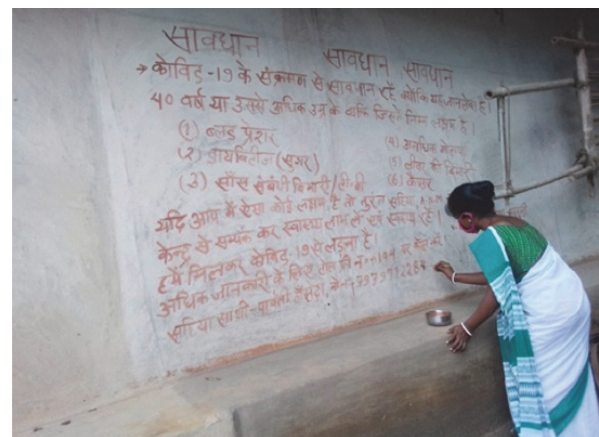 सावधान सावधान सावधान
→ कोविड-19 के संक्रमण से सावधान रहें क्योंकि यह जानलेवा है।
40 वर्ष या उससे अधिक उम्र के व्यक्ति जिसमें निम्न लक्षण है।
(1) ब्लड प्रेशर
(2) डायबिटीज (सुगर)
(3) साँस संबंधी बिमारी/टी.बी
(4) अत्यधिक मोटापा
(5) लीवर की बिमारी
(6) कैंसर
यदि आप में ऐसा कोई लक्षण है तो तुरन्त सहिया, A.N.M
केन्द्र से सम्पर्क कर स्वास्थ्य लाभ लें एवं स्वस्थ रहें।
हमें मिलकर कोविड-19 से लड़ना है।
अधिक जानकारी के लिए टोल फ्री नं०-104 पर कॉल करें।
सहिया साथी-